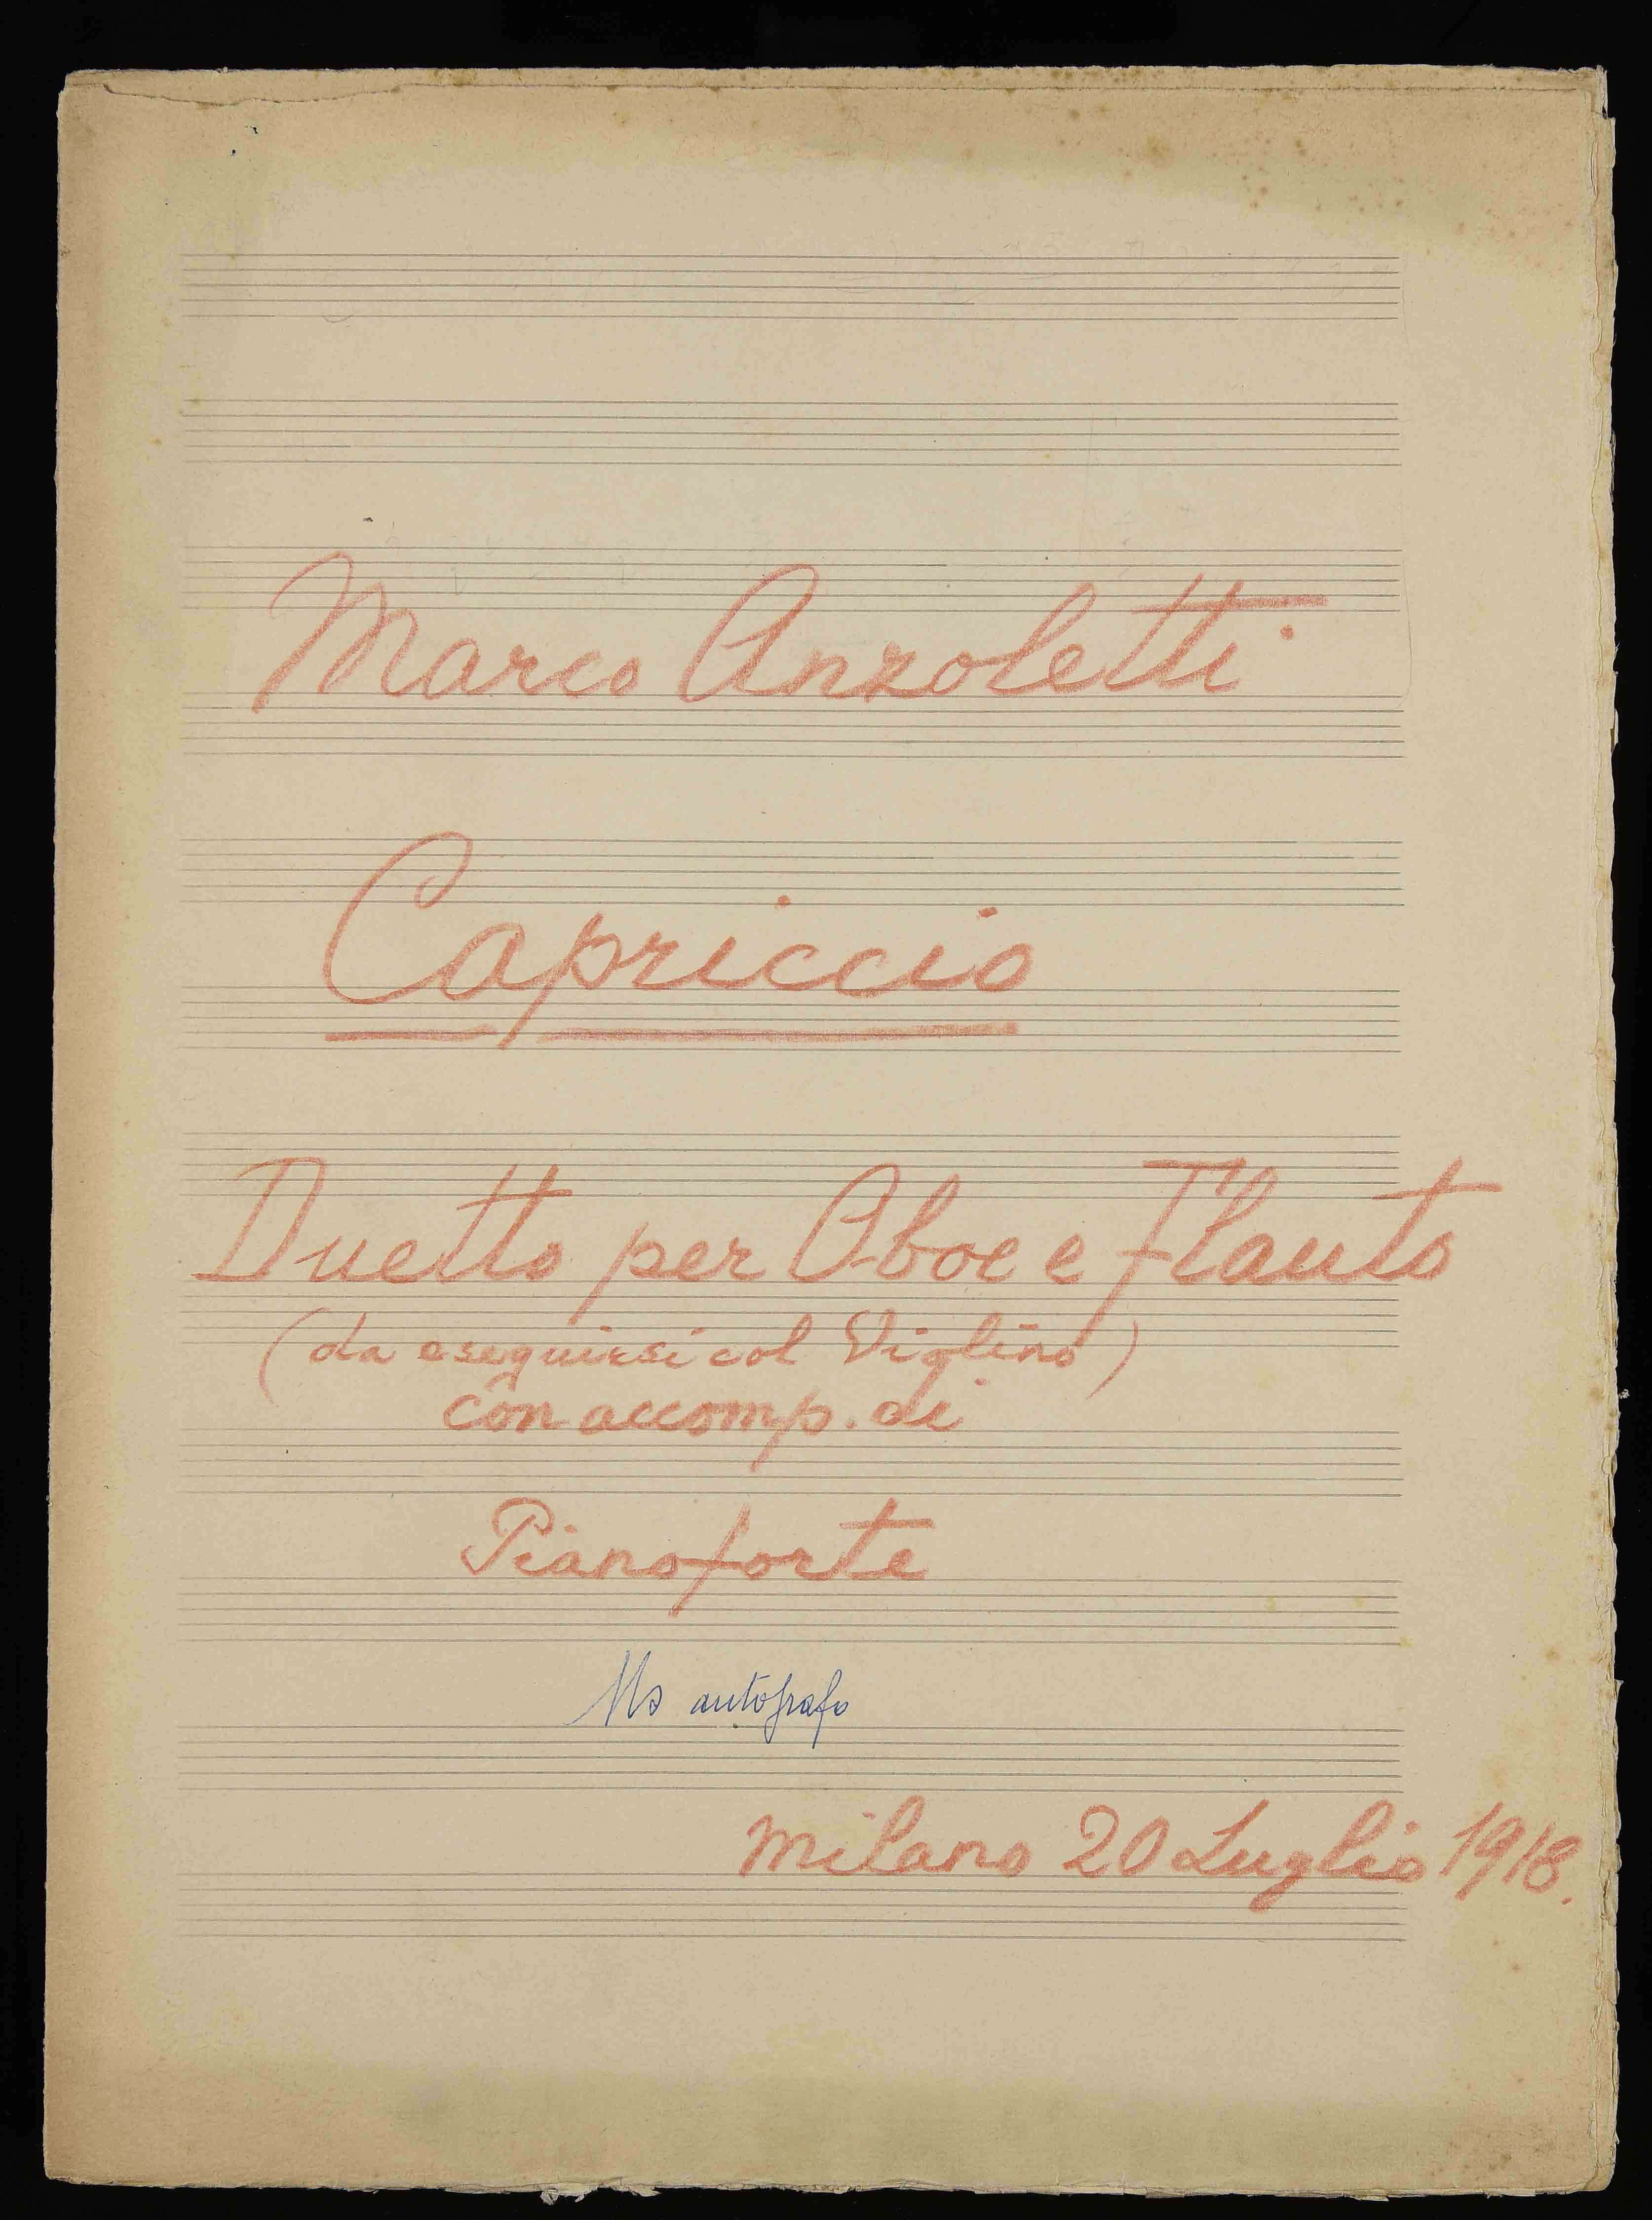 Marco Anzoletti
Capriccio
Duetto per Oboe e Flauto
(da eseguirsi col Violino)
con accomp. di
Pianoforte
Ms autografo
Milano 20 Luglio 1918.